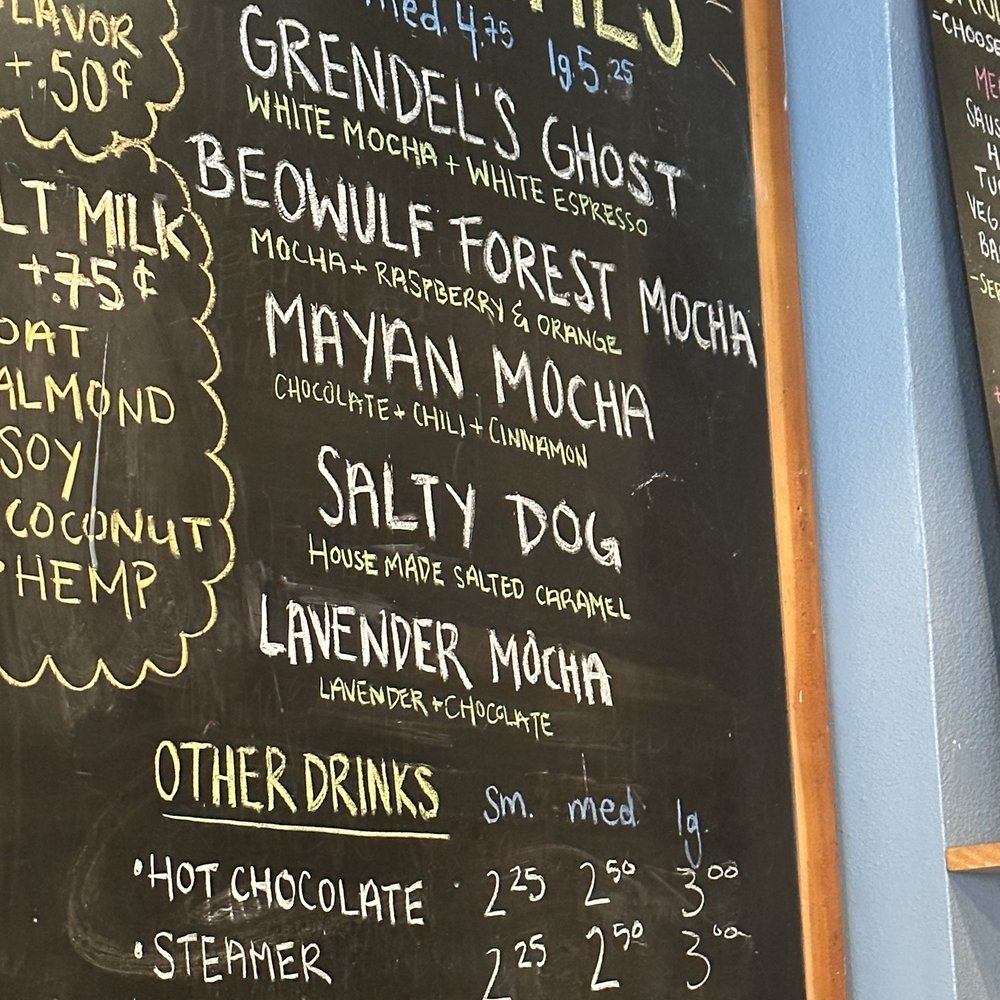 FLAVOR
+.50¢
LT MILK
+.75¢
OAT
ALMOND
SOY
COCONUT
HEMP
med. 4.75 lg. 5.25
GRENDEL'S GHOST
WHITE MOCHA + WHITE ESPRESSO
BEOWULF FOREST MOCHA
MOCHA + RASPBERRY & ORANGE
MAYAN MOCHA
CHOCOLATE + CHILI + CINNAMON
SALTY DOG
HOUSE MADE SALTED CARAMEL
LAVENDER MOCHA
LAVENDER + CHOCOLATE
OTHER DRINKS sm. med lg.
• HOT CHOCOLATE 2 25 2 50 3 00
• STEAMER 2 25 2 50 3 00
-CHOOSE